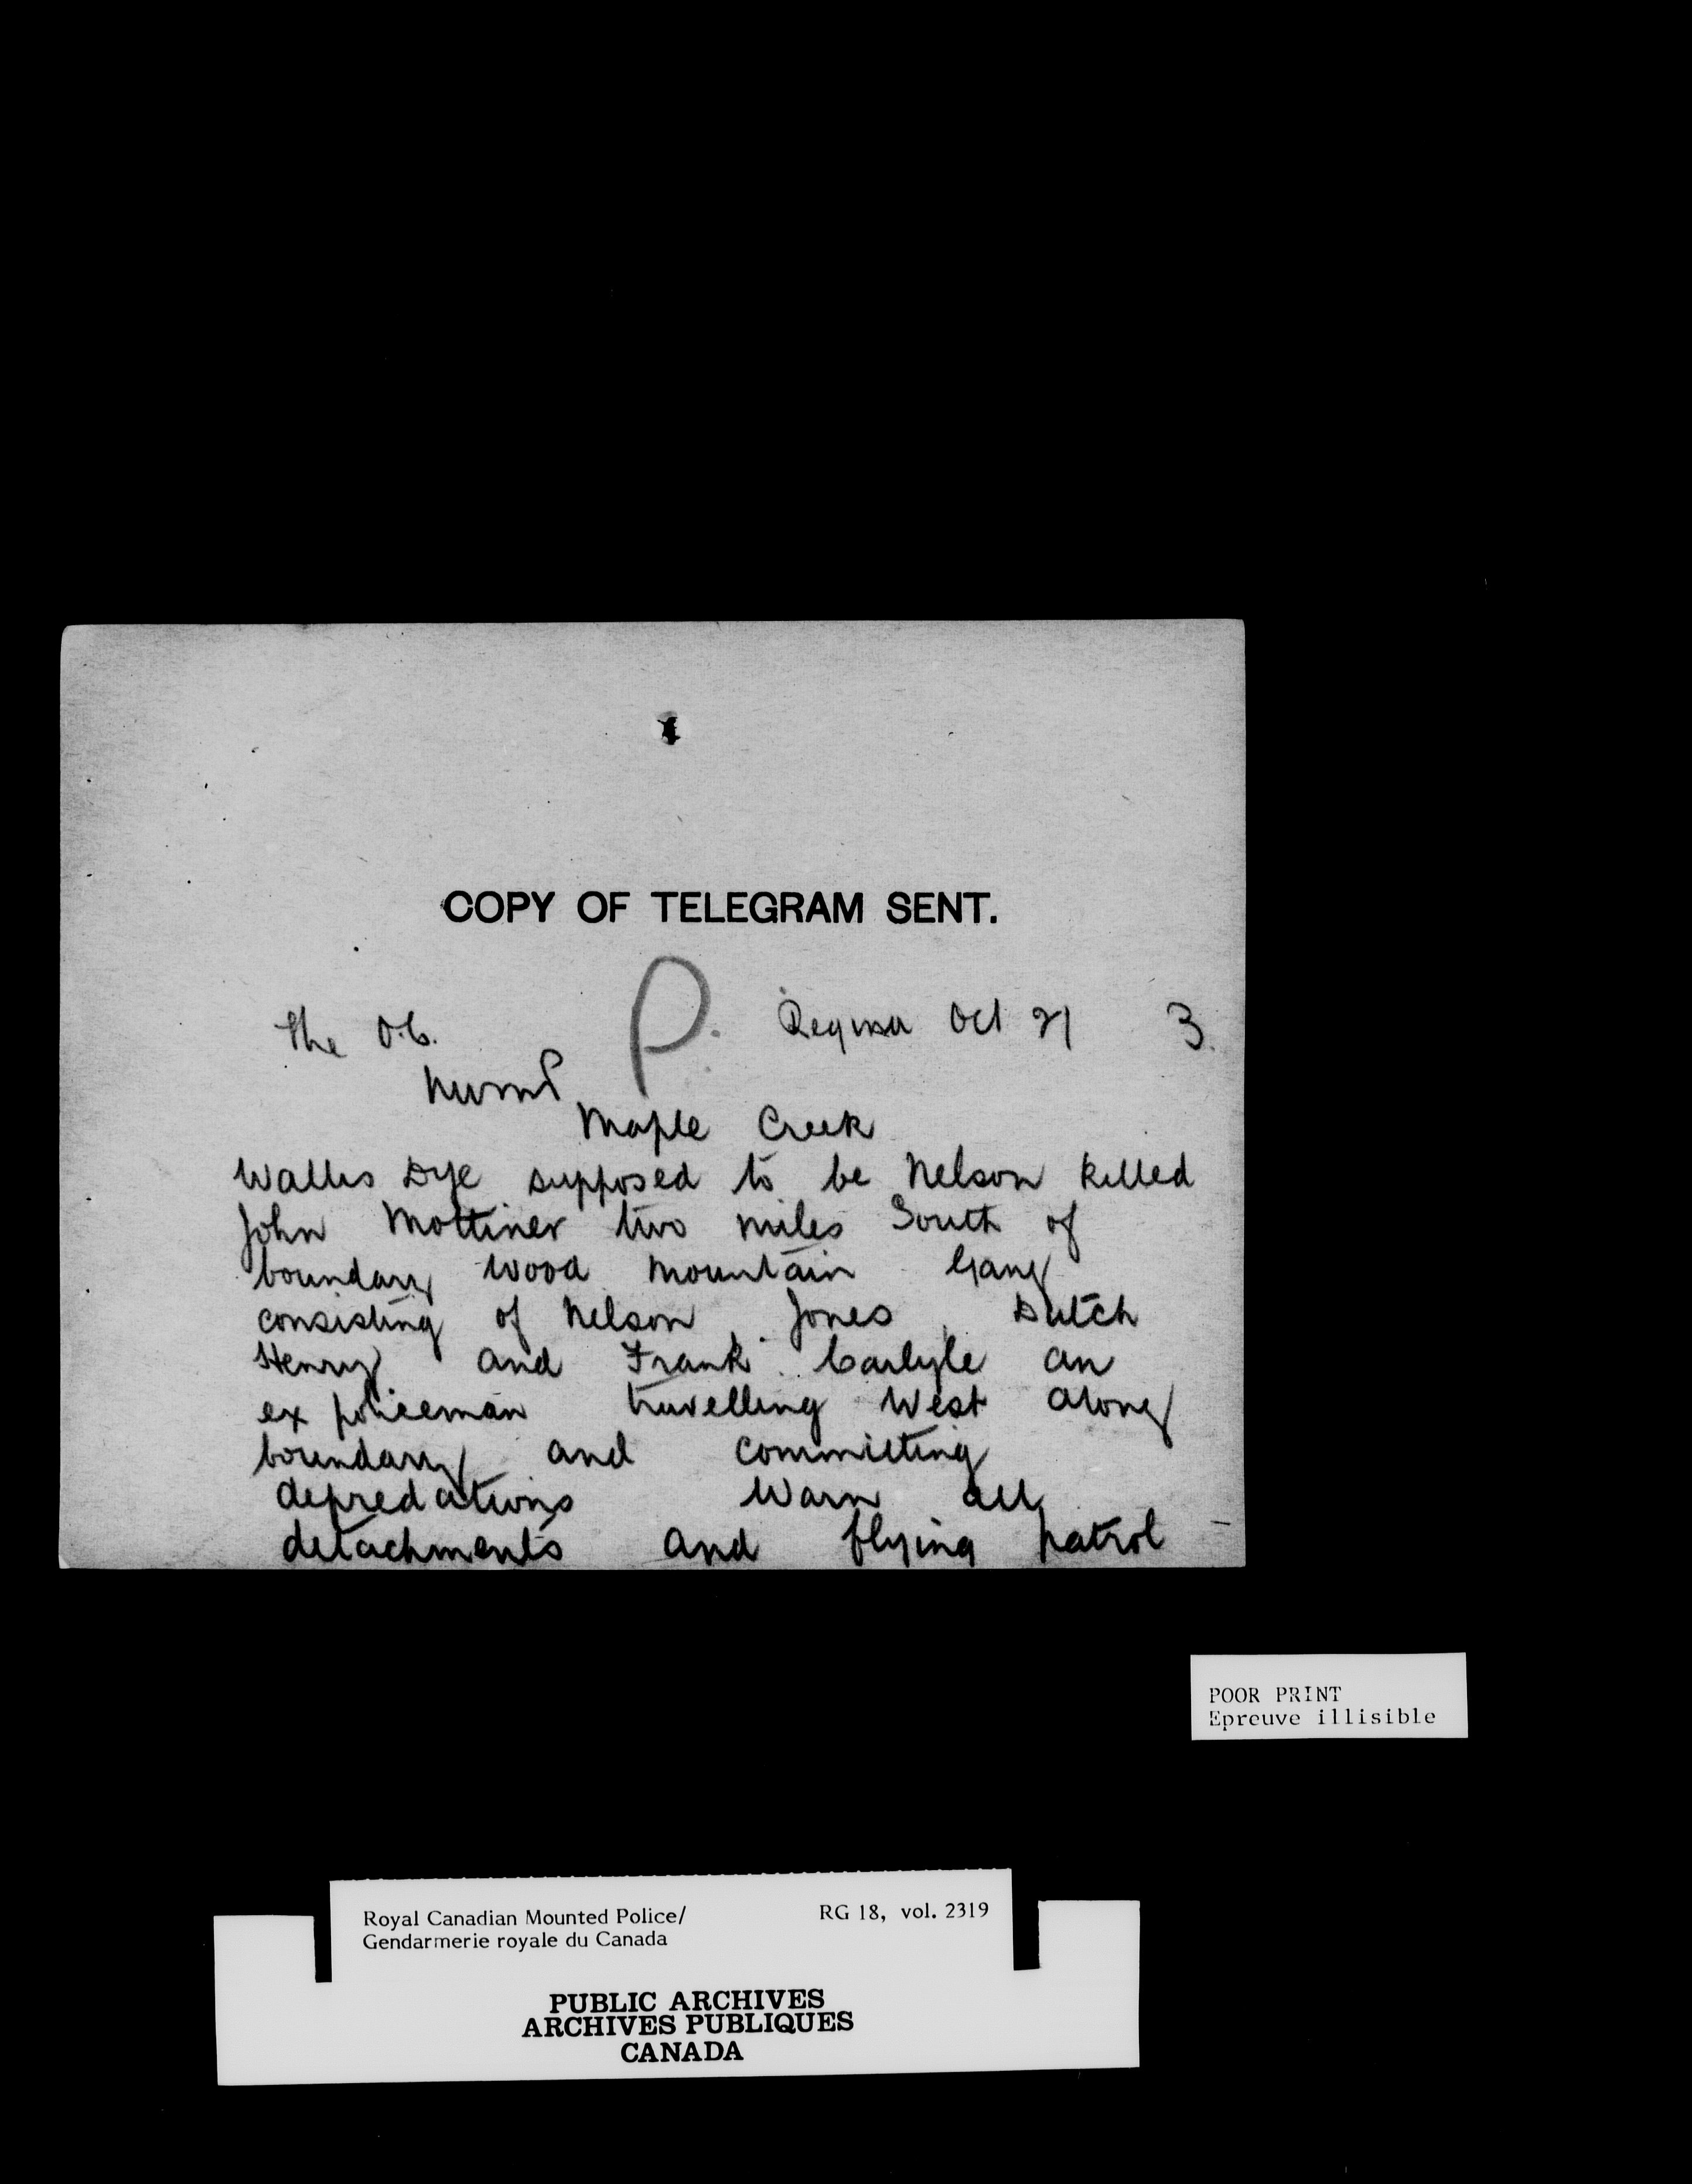 COPY OF TELEGRAM SENT.
P.
The O.C. Regina Oct 21 3.
NWMP
Maple Creek
Walles Dye supposed to be Nelson killed
John Mottiner two miles South of
boundary Wood Mountain Gang
consisting of Nelson, Jones, Dutch
Henry and Frank Carlyle an
ex policeman travelling West along
boundary and committing
depredations Warn all
detachments and flying patrol
POOR PRINT
Epreuve illisible
Royal Canadian Mounted Police/ RG 18, vol. 2319
Gendarmerie royale du Canada
PUBLIC ARCHIVES
ARCHIVES PUBLIQUES
CANADA